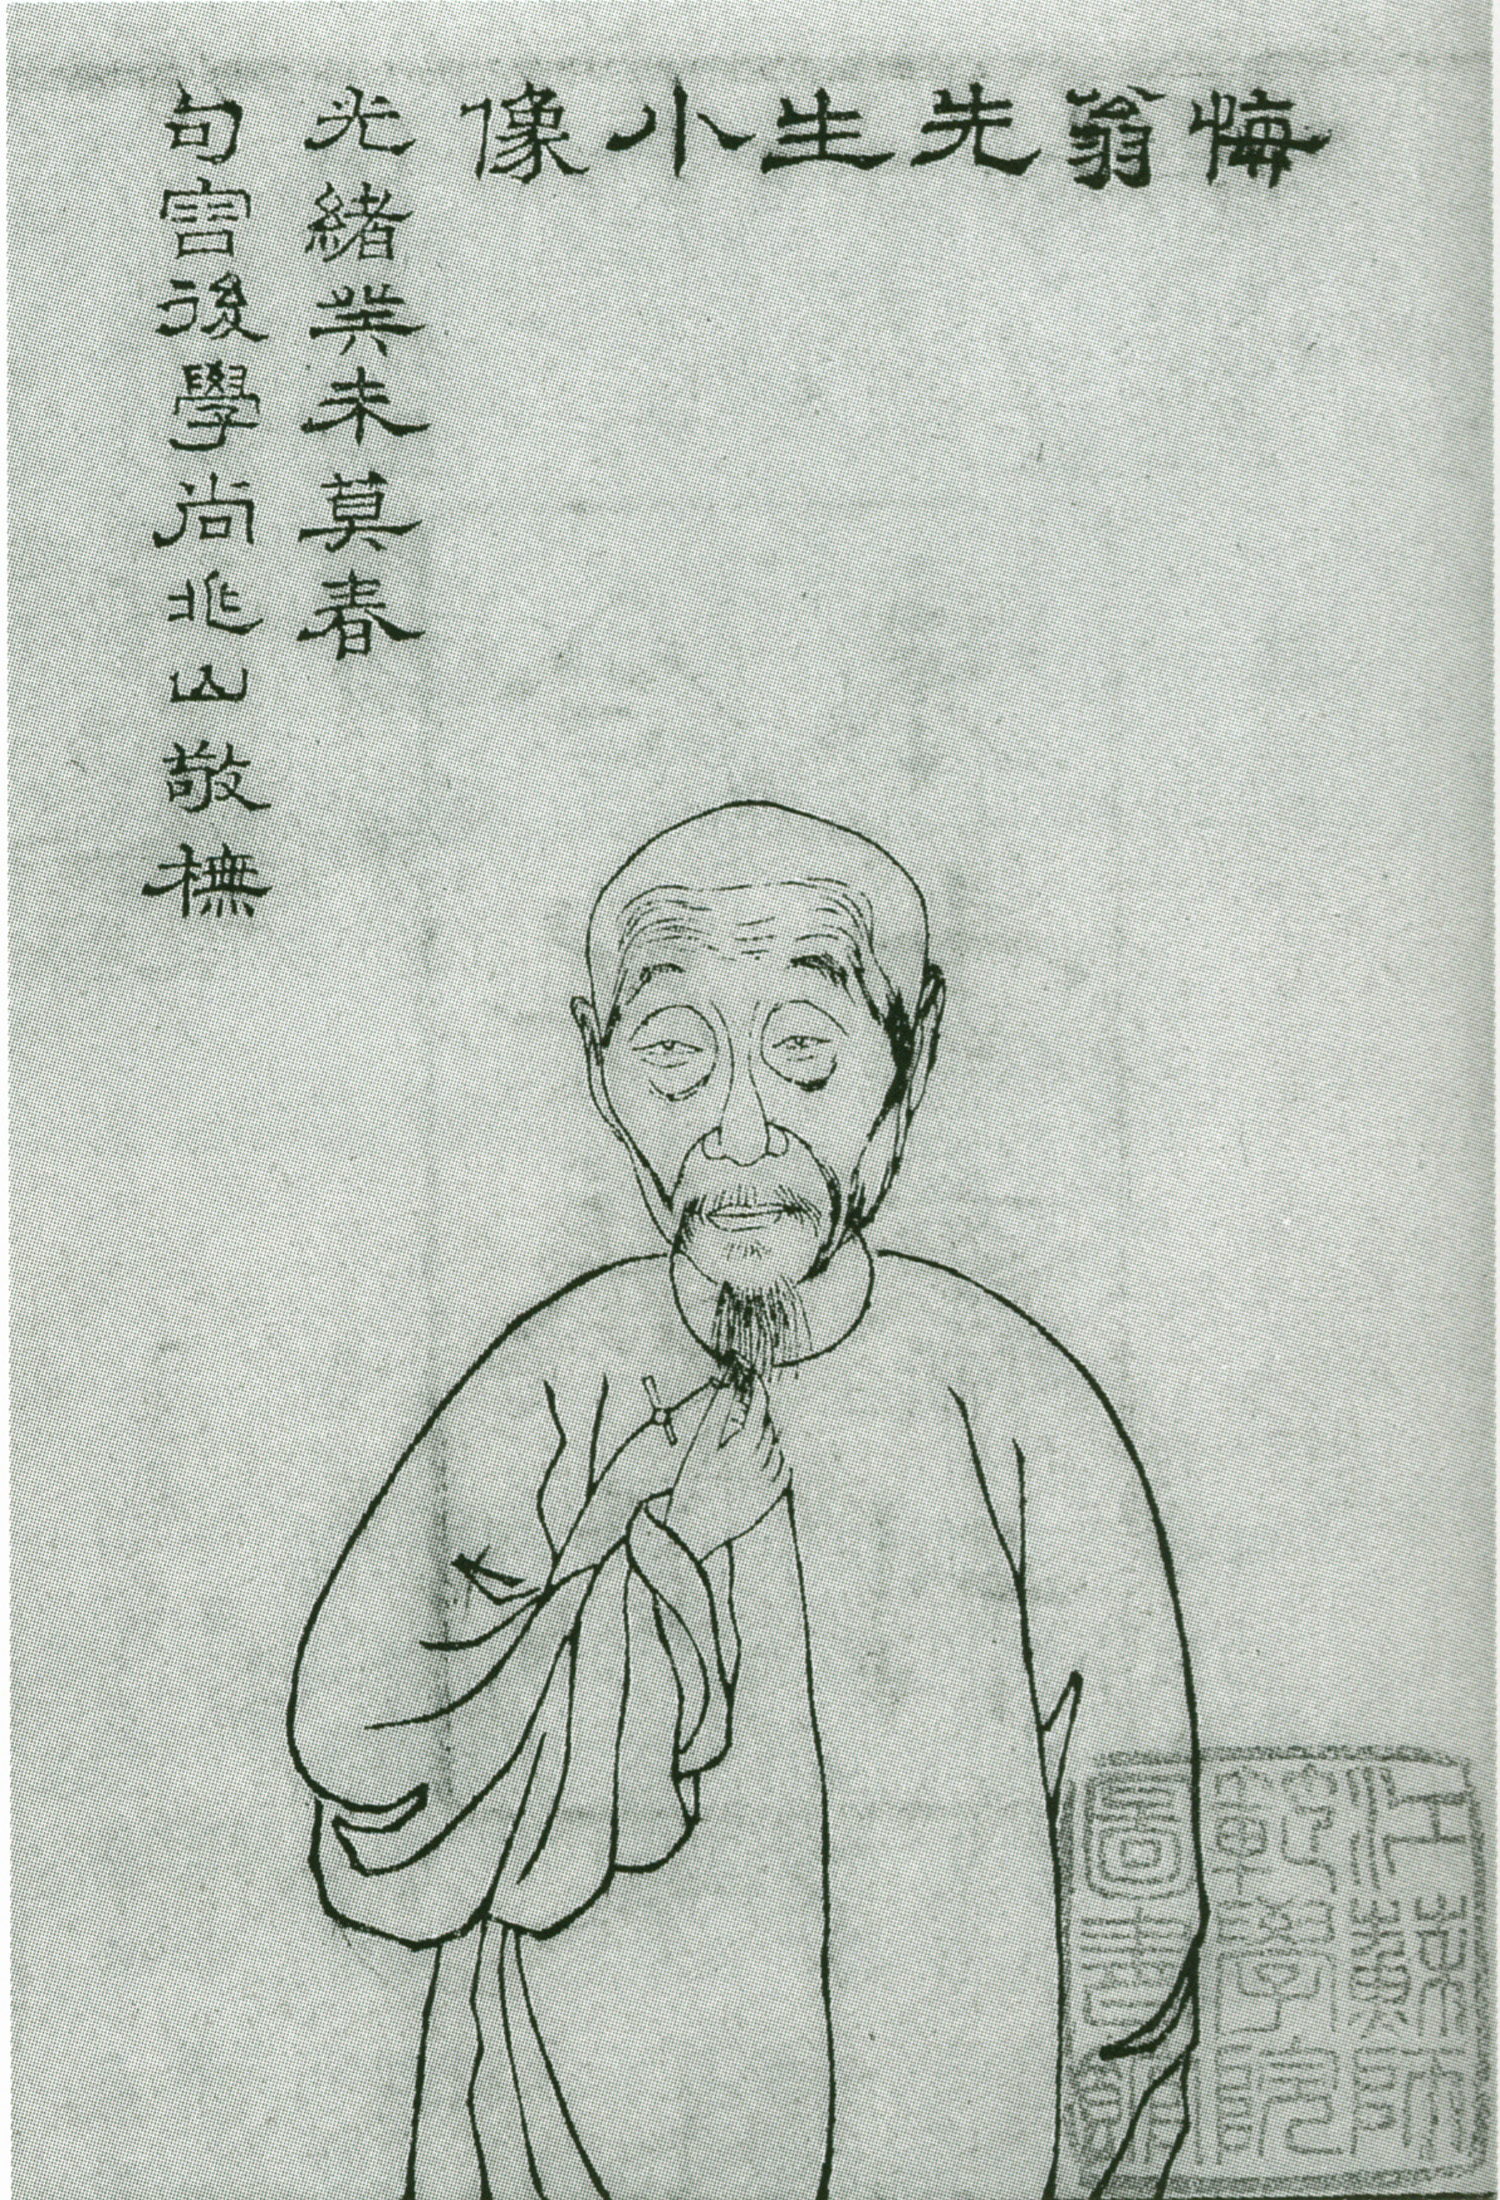 悔翁先生小像
光緒癸未莫春
句容後學尚兆山敬橅
江蘇師
範學院
圖書館